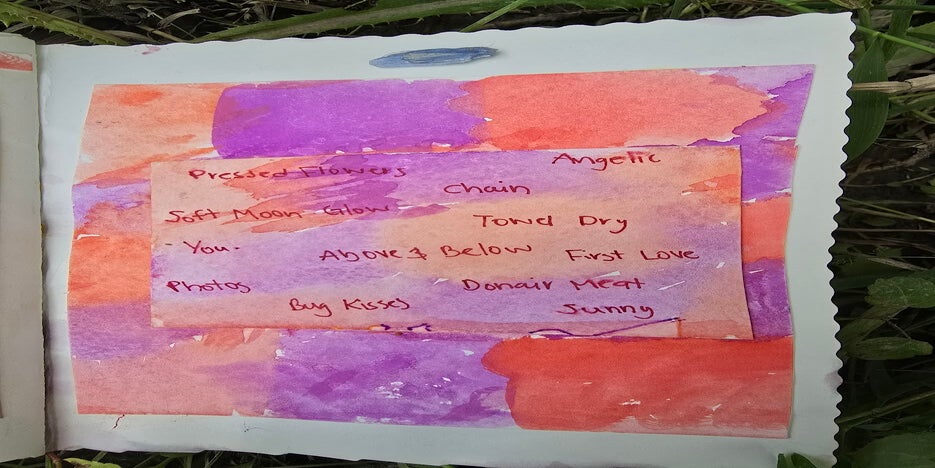 Angelic
Pressed Flowers
Chain
Soft Moon Glow
Towel Dry
You.
Above & Below
First Love
Photos
Donair Meat
Bug Kisses
Sunny